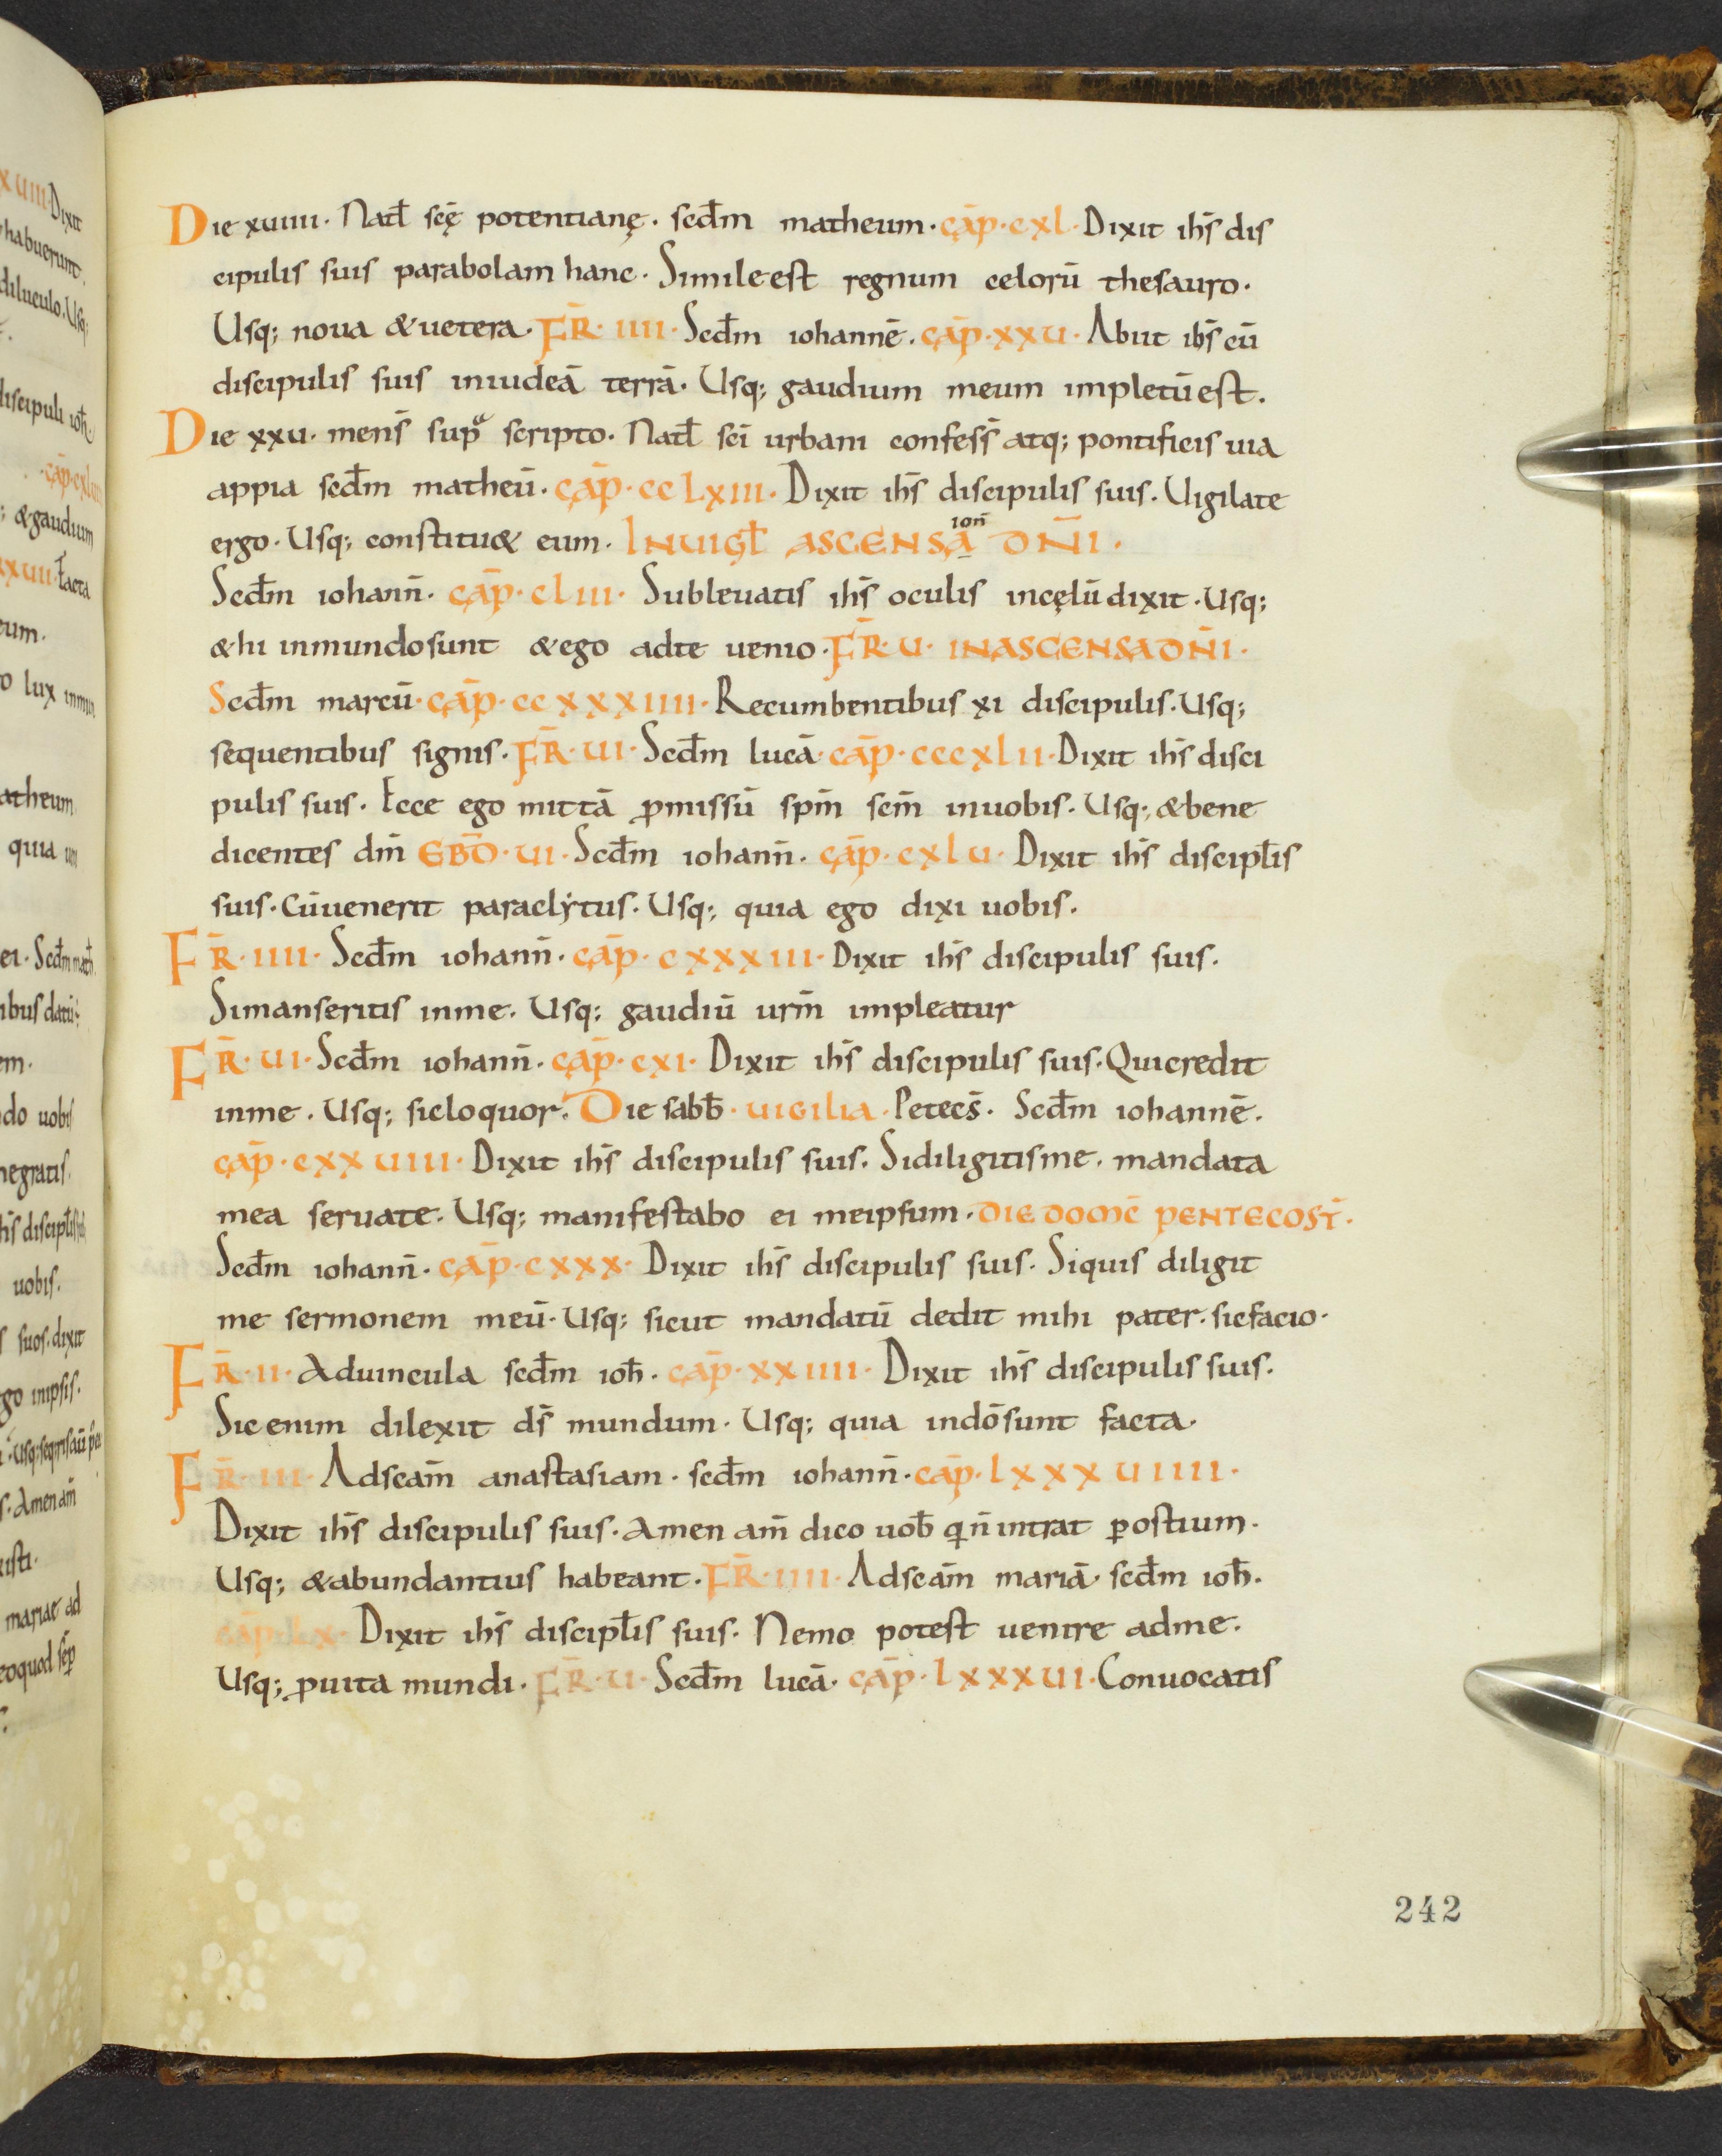 Die xuiiii · Natł scę potentianę · scdm matheum · cāp · cxl · Dixit ihs dis
cipulis suis parabolam hanc · Simile est regnum celorū thesauro ·
Usq; noua & uetera · FR̄ · IIII · Scdm iohannē · cāp · xxu · Abiit ihs cū
discipulis suis iniudeā terrā · Usq; gaudium meum impletū est ·
Die xxu · mens̄ supᵃ scripto · Natł sci urbani confess̄ atq; pontificis uia
appia scdm matheū · cāp · cclxiii · Dixit ihs discipulis suis · Uigilate
ergo · Usq; constitu& eum · INUIGŁ ASCENSAioñ DÑI ·
Scdm iohann̄ · cāp · cliii · Subleuatis ihs oculis incęlū dixit · Usq;
& hi inmundo sunt & ego adte uenio · FR̄ · U · INASCENSA DÑI ·
Scdm marcū · cāp · ccxxxiiii · Recumbentibus xi discipulis · Usq;
sequentibus signis · FR̄ · UI · Scdm lucā · cāp · cccxlii · Dixit ihs disci
pulis suis · Ecce ego mittā ꝓmissū spm̄ scm̄ inuobis · Usq; & bene
dicentes dm̄ EBD̄ · UI · Scdm iohann̄ · cāp · cxlu · Dixit ihs discipłis
suis · Cūuenerit paraclẏtus · Usq; quia ego dixi uobis ·
FR̄ · IIII · Scdm iohann̄ · cāp · cxxxiii · Dixit ihs discipulis suis ·
Simanseritis inme · Usq; gaudiū urm̄ impleatur
FR̄ · UI · Scdm iohann̄ · cāp · cxi · Dixit ihs discipulis suis · Quicredit
inme · Usq; sicloquor · Die sabb̄ · UIGILIA · Petecs̄ · Scdm iohannē ·
cāp · cxxuiiii · Dixit ihs discipulis suis · Sidiligitisme · mandata
mea seruate · Usq; manifestabo ei meipsum · DIE DOMC̄ PENTECOST̄ ·
Scdm iohann̄ · cāp · cxxx · Dixit ihs discipulis suis · Siquis diligit
me sermonem meū · Usq; sicut mandatū dedit mihi pater · sicfacio ·
FR̄ · II · Aduincula scdm ioh̄ · cāp · xxiiii · Dixit ihs discipulis suis ·
Sic enim dilexit ds̄ mundum · Usq; quia indō sunt facta ·
FR̄ · III · Adscam̄ anastasiam · scdm iohann̄ · cāp · lxxxuiiii ·
Dixit ihs discipulis suis · Amen am̄ dico uob̄ qn̄ intrat ꝑ ostium ·
Usq; & abundantius habeant · FR̄ · IIII · Adscam̄ mariā · scdm ioh̄ ·
cāp · lx · Dixit ihs discipłis suis · Nemo potest uenire adme ·
Usq; ꝓuita mundi · FR̄ · U · Scdm lucā · cāp · lxxxui · Conuocatis
242